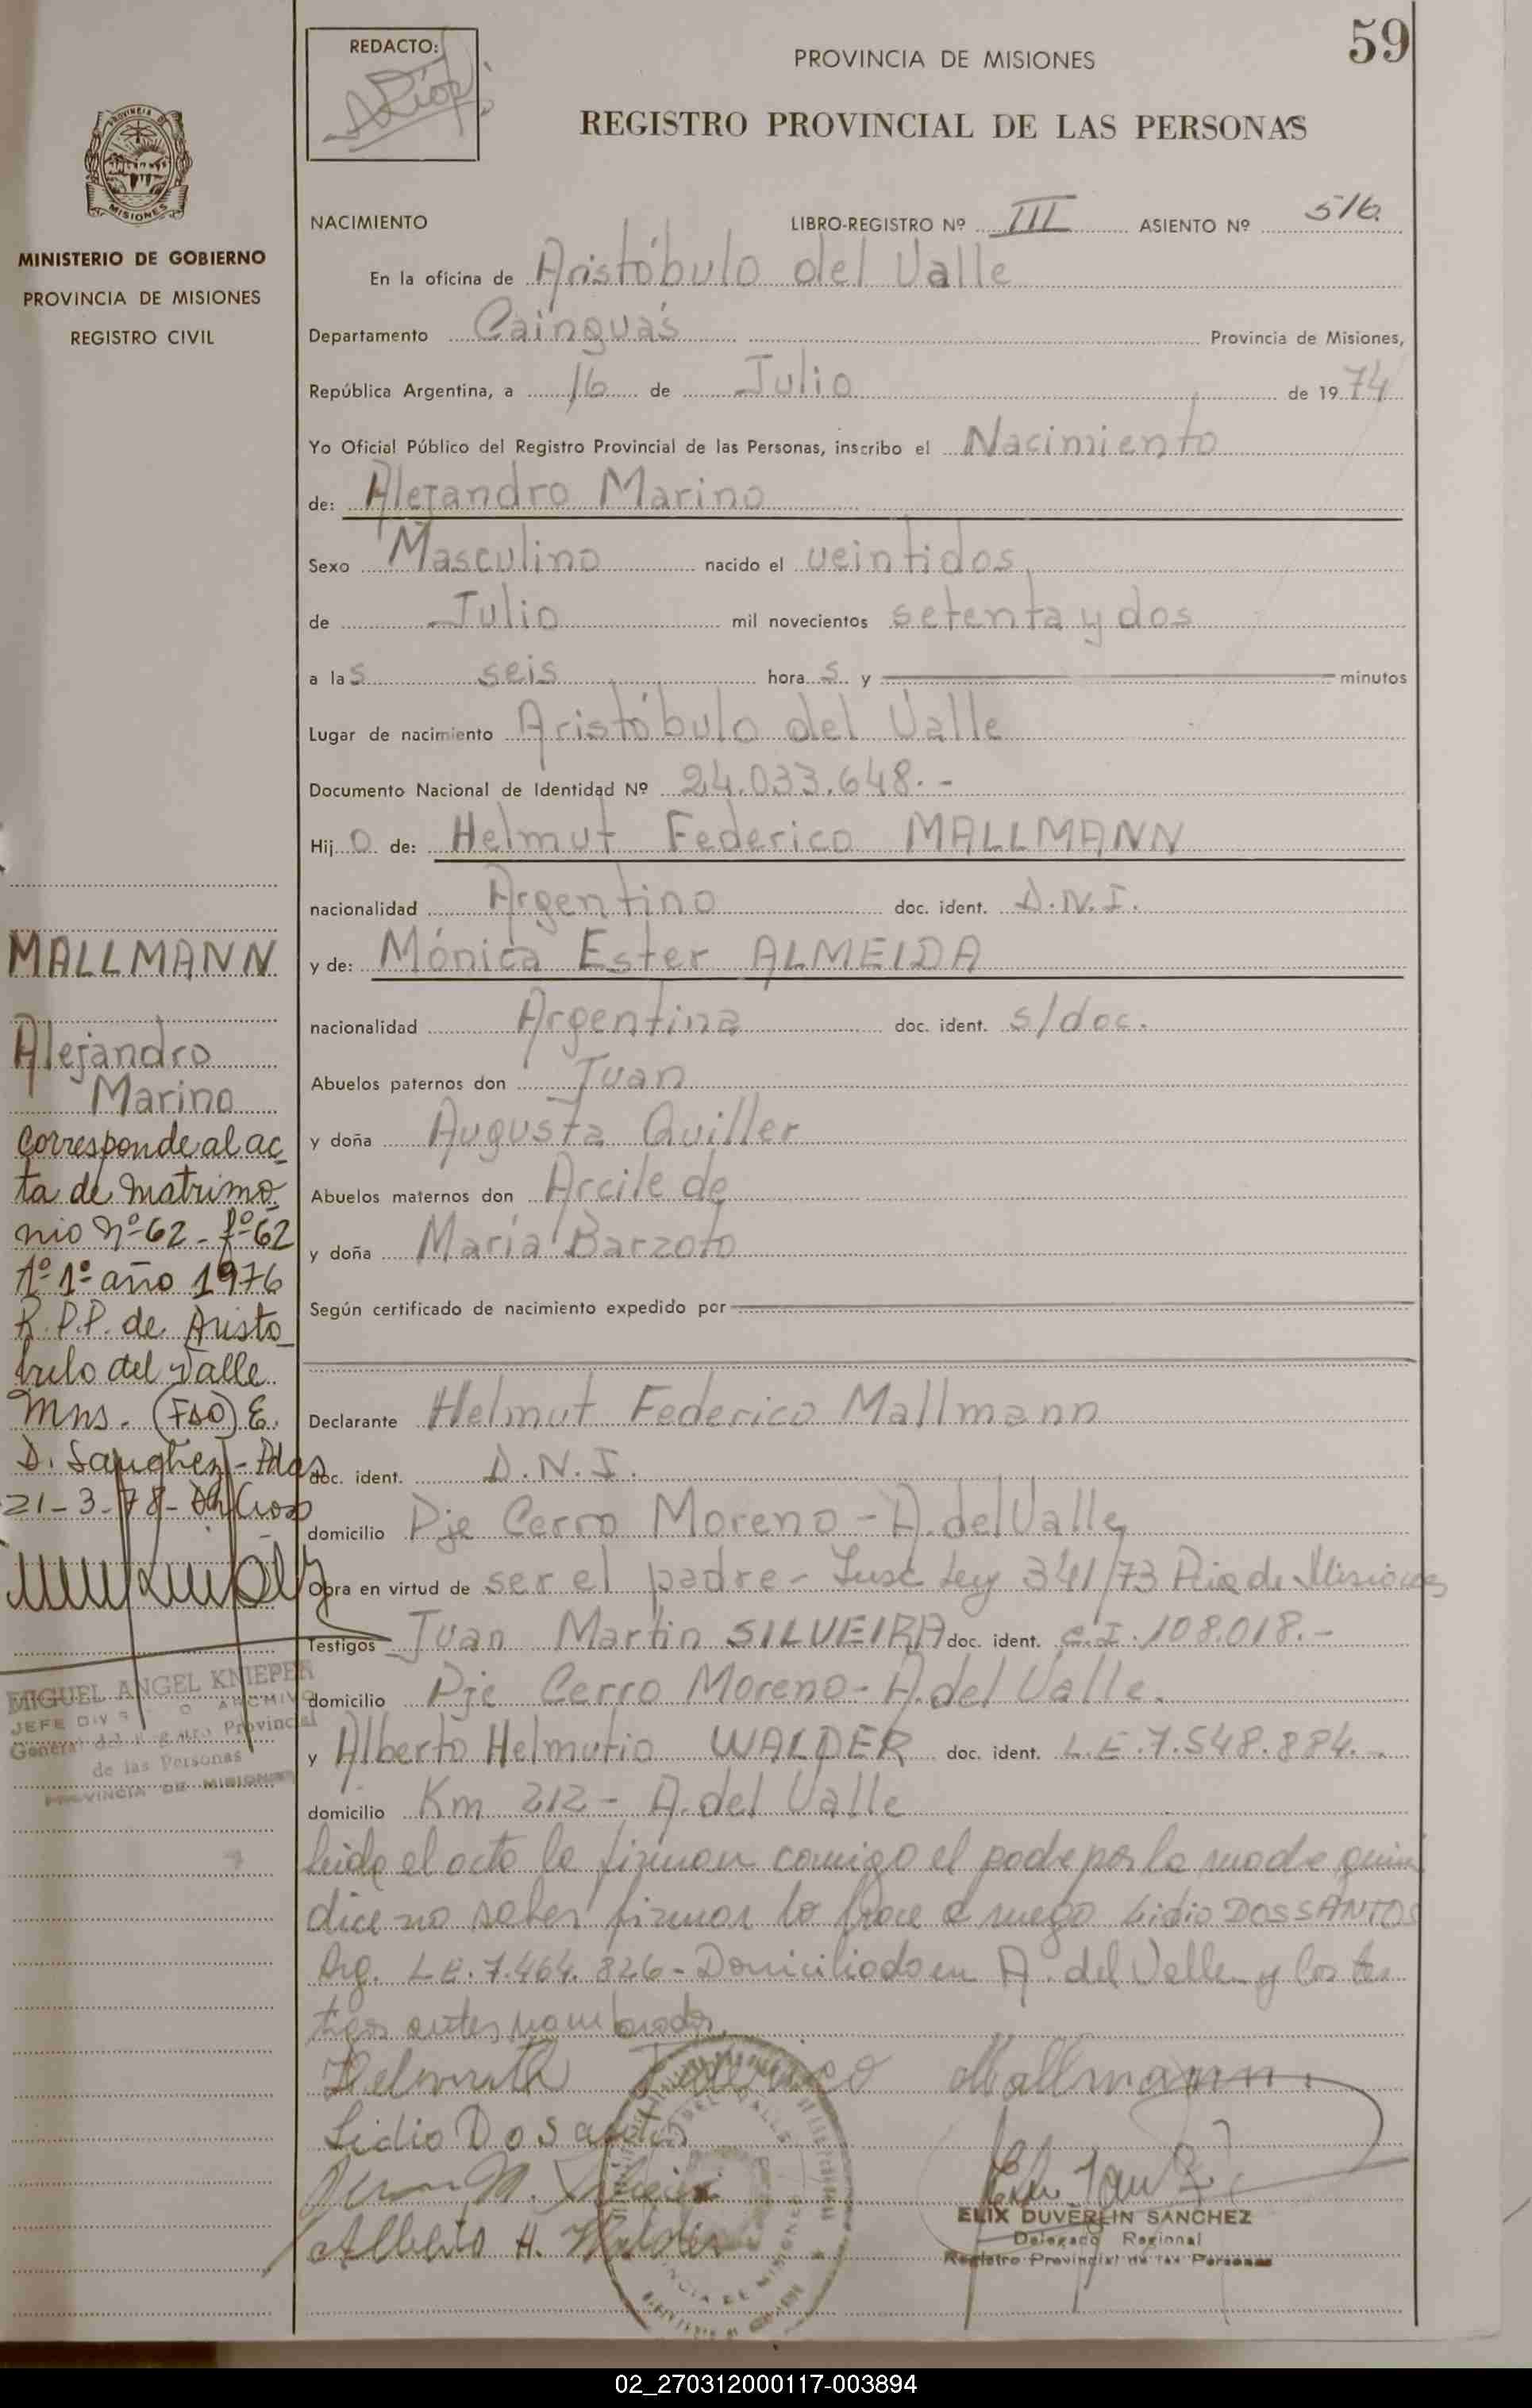 59
REDACTO:
PROVINCIA DE MISIONES
REGISTRO PROVINCIAL DE LAS PERSONAS
MISIONES
MINISTERIO DE GOBIERNO
PROVINCIA DE MISIONES
REGISTRO CIVIL
NACIMIENTO LIBRO-REGISTRO Nº III ASIENTO Nº 516.
En la oficina de Aristóbulo del Valle
Departamento Cainguás Provincia de Misiones,
República Argentina, a 16 de Julio de 1974
Yo Oficial Público del Registro Provincial de las Personas, inscribo el Nacimiento
de: Alejandro Marino
Sexo Masculino nacido el veintidos
de Julio mil novecientos setenta y dos
a las seis horas y minutos
Lugar de nacimiento Aristóbulo del Valle
Documento Nacional de Identidad Nº 24.033.648.-
Hijo de: Helmut Federico MALLMANN
nacionalidad Argentino doc. ident. D.N.I.
y de: Mónica Ester ALMEIDA
nacionalidad Argentina doc. ident. s/doc.
Abuelos paternos don Juan
y doña Augusta Quiller
Abuelos maternos don Arcile de
y doña María Barzoto
Según certificado de nacimiento expedido por
Declarante Helmut Federico Mallmann
doc. ident. D.N.I.
domicilio Pje Cerro Moreno - A. del Valle
Obra en virtud de ser el padre - Insc Ley 341/73 Pcia de Misiones
Testigos Juan Martin SILVEIRA doc. ident. C.I. 108.018.-
domicilio Pje Cerro Moreno - A. del Valle.
y Alberto Helmutio WALDER doc. ident. L.E. 7.548.884.-
domicilio Km 212 - A. del Valle
leida el acta la firman conmigo el padre por la madre quien
dice no saber firmar lo hace a ruego Lidio DOS SANTOS
Arg. L.E. 7.464.826 - Domiciliado en A. del Valle y los tes
tigos antes nombrados.
Federico Mallmann.
Lidio Dos Santos
Alberto H. Walder
ELIX DUVERLIN SANCHEZ
Delegado Regional
Registro Provincial de las Personas
MALLMANN
Alejandro
Marino
Corresponde al ac
ta de matrimo
nio Nº 62 - fº 62
Tº 1º año 1976
R.P.P. de Aristo
bulo del Valle
Mns. (Fdo) E.
D. Sanchez - Pdas
21-3-78-
MIGUEL ANGEL KNIEPER
JEFE DIV ARCHIVO
General del Registro Provincial
de las Personas
PROVINCIA DE MISIONES
02_270312000117-003894